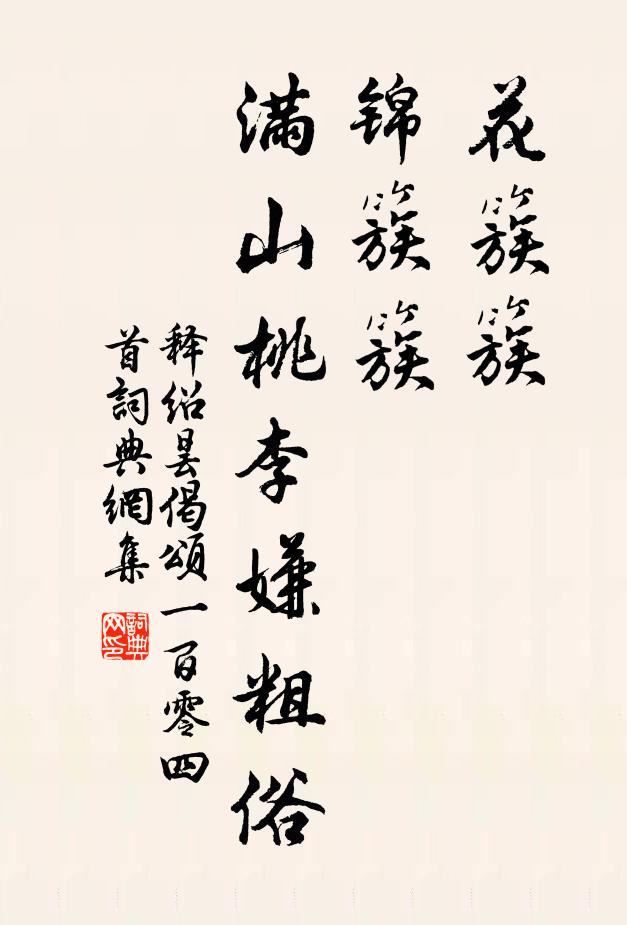 花簇簇
锦簇簇
满山桃李嫌粗俗
释绍昙偈頌一百零四
首詞典網集
詞典
网印